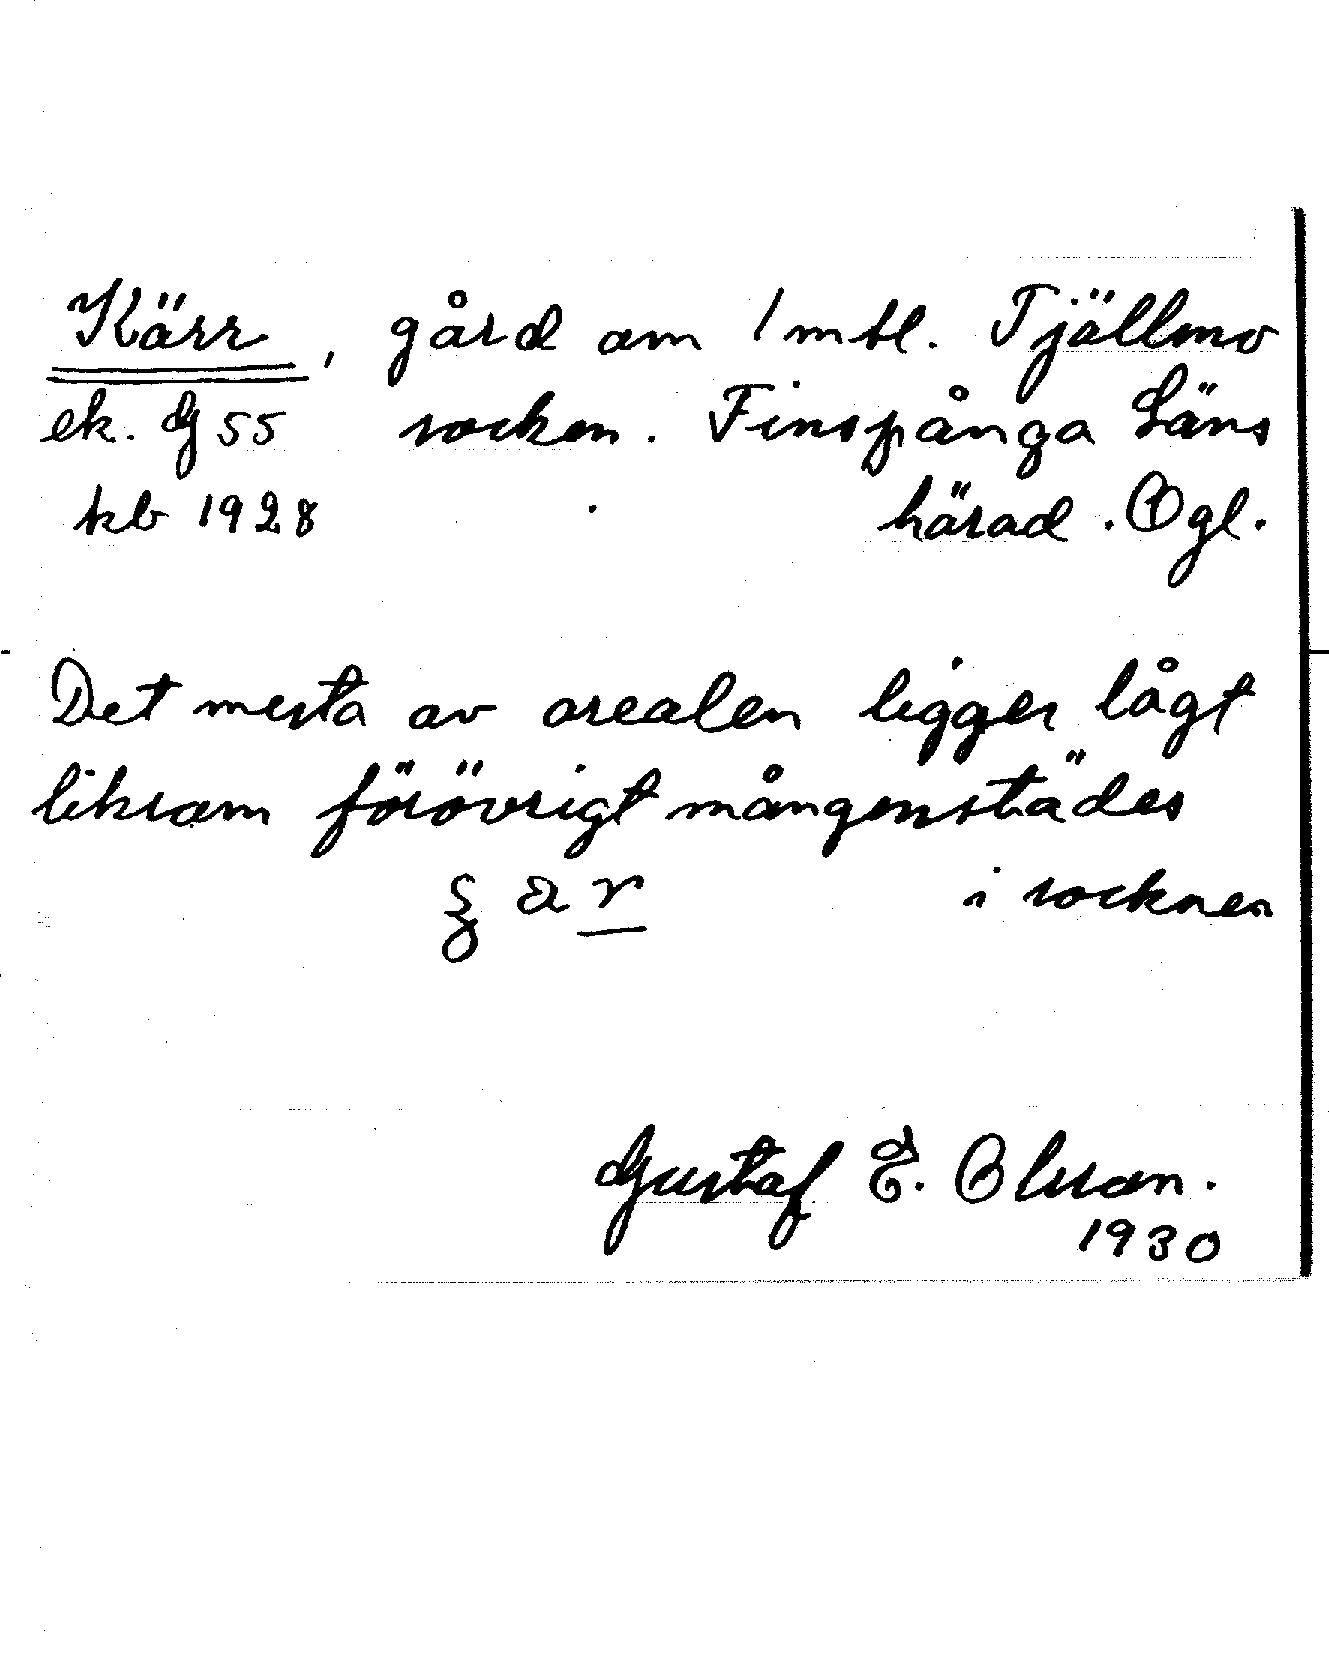 Kärr, gård om 1 mtl. Tjällmo
ek. G 55 socken. Finspånga Läns
kb 1928 härad. Ögl.
Det mesta av arealen ligger lågt
liksom förövrigt mångenstädes
i socknen
Gustaf E. Olsson.
1930